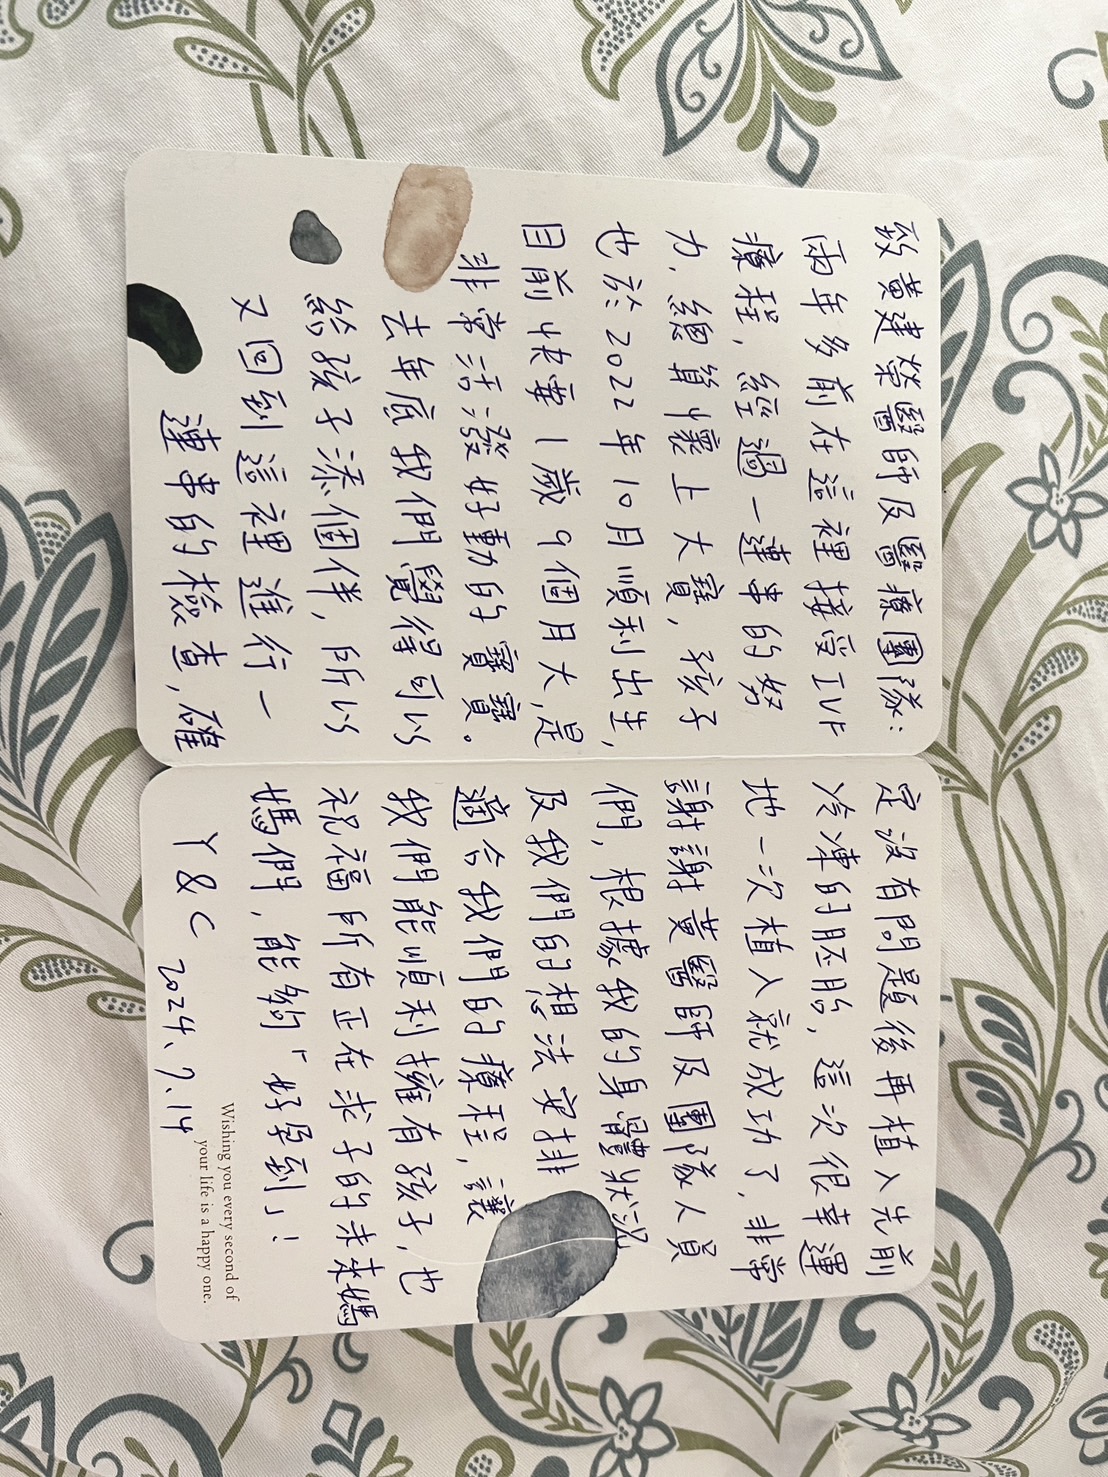 致黃建榮醫師及醫療團隊:
兩年多前在這裡接受IVF
療程,經過一連串的努
力,總算懷上大寶,孩子
也於2022年10月順利出生,
目前快要1歲9個月大,是
非常活潑好動的寶寶。
去年底我們覺得可以
給孩子添個伴,所以
又回到這裡進行一
連串的檢查,確
定沒有問題後再植入先前
冷凍的胚胎,這次很幸運
地一次植入就成功了,非常
謝謝黃醫師及團隊人員
們,根據我的身體狀況
及我們的想法安排
適合我們的療程,讓
我們能順利擁有孩子,也
祝福所有正在求子的未來媽
媽們,能夠「好孕到」!
Wishing you every second of
your life is a happy one.
Y & C
2024.7.14